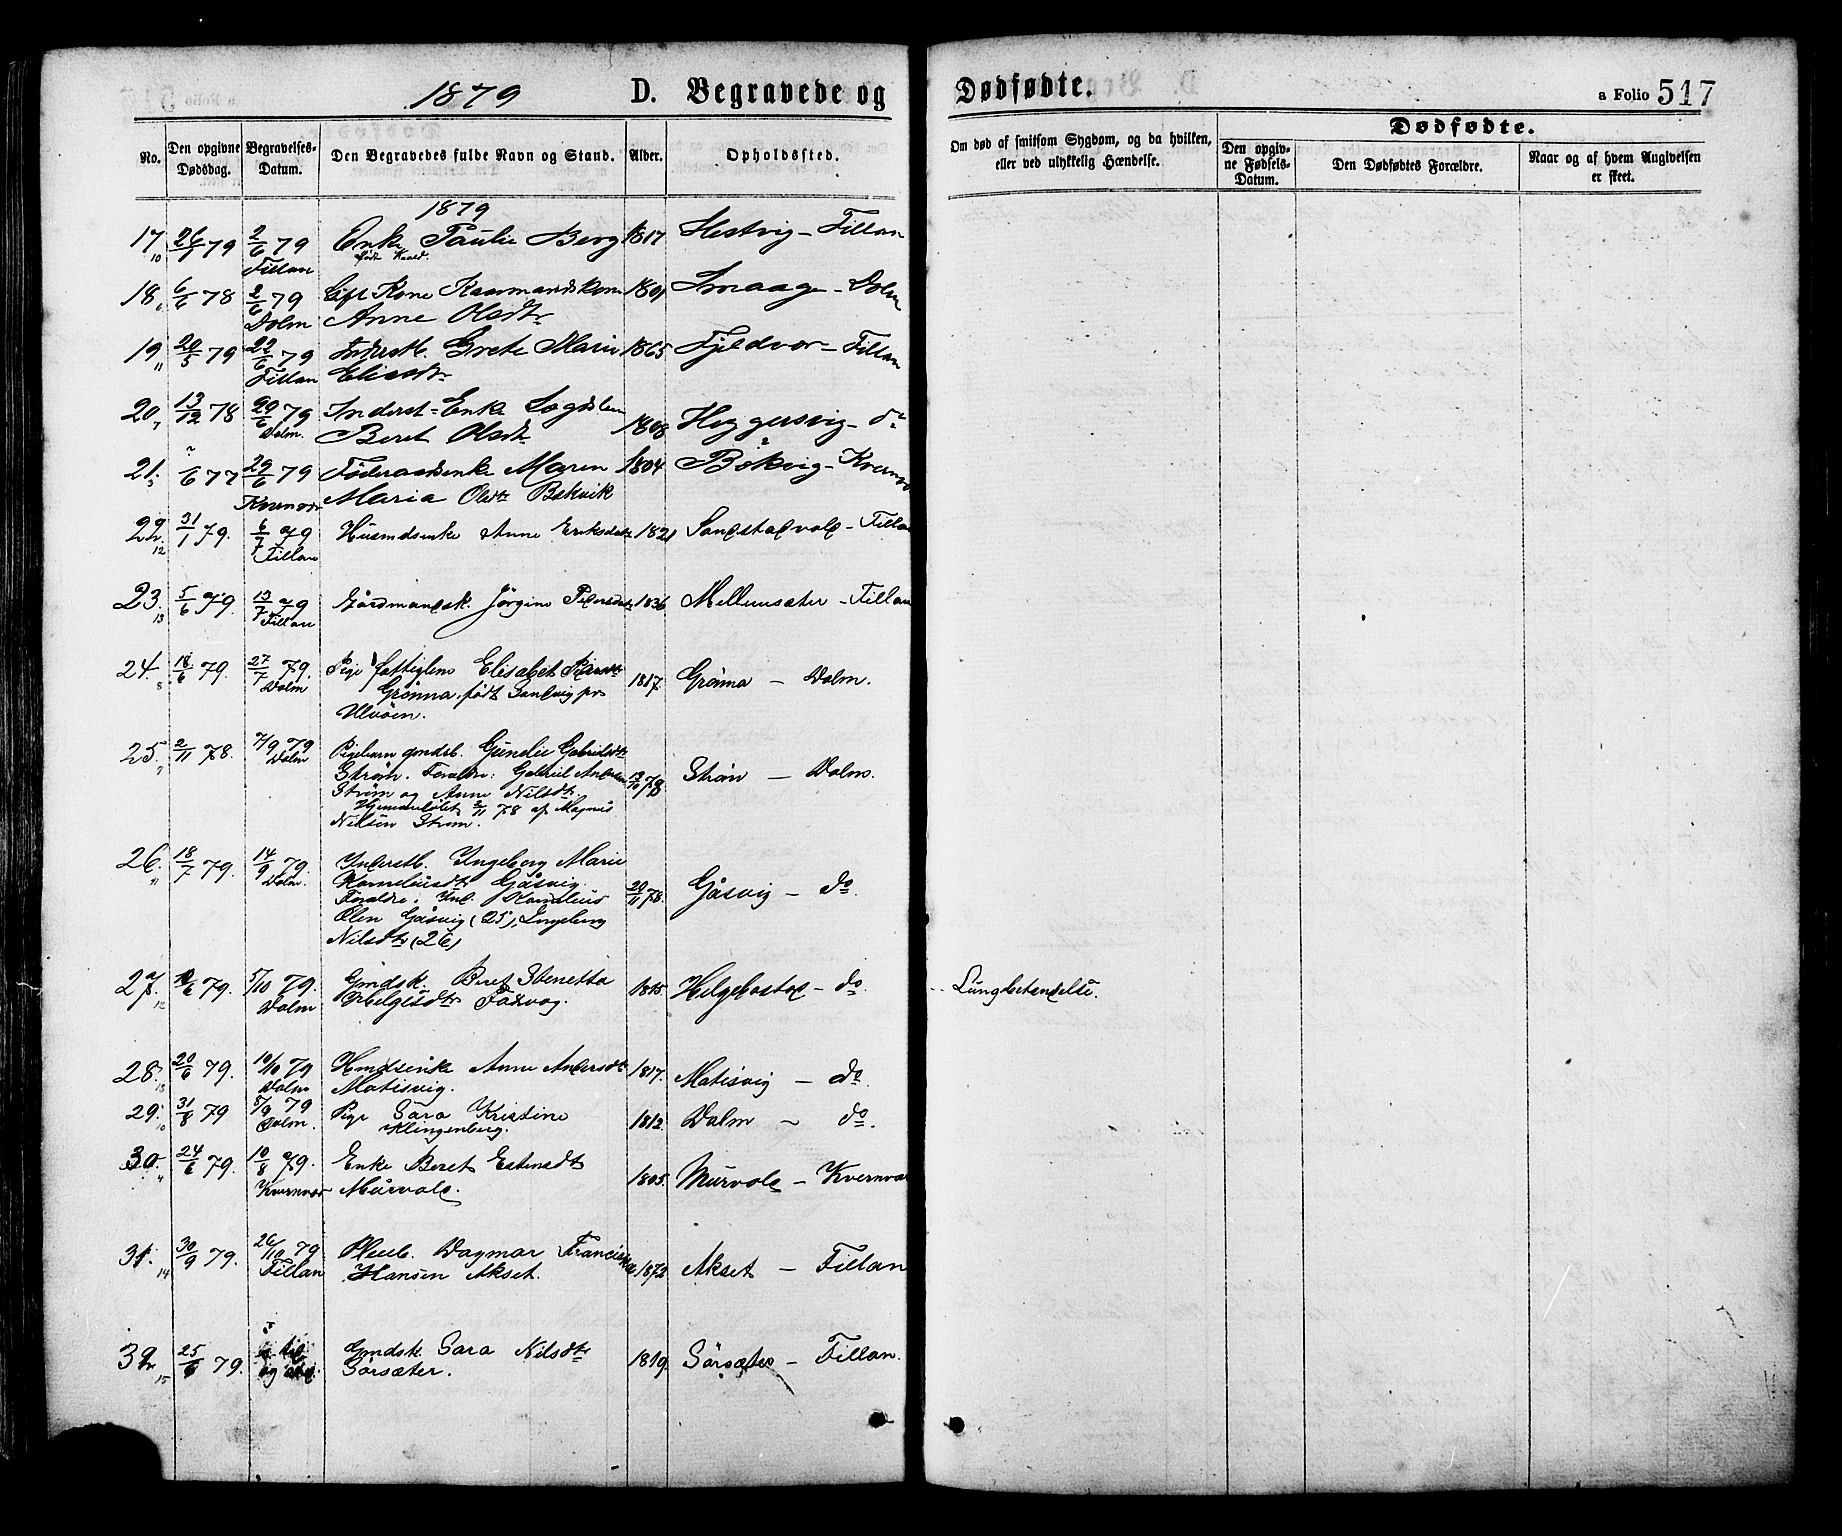 1879 D. Begravede og Dødfødte. a Folio 517
No. Den opgivne Dødsdag. Begravelses-Datum. Den Begravedes fulde Navn og Stand. Alder. Opholdssted. Om død af smitsom Sygdom, og da hvilken, eller ved ulykkelig Hændelse. Dødfødte.
Den opgivne Fødsels-Datum. Den Dødfødtes Forældre. Naar og af hvem Angivelsen er skeet.
1879
17 79 2/6 79 Enke Paulie Berg 1817 Hestvig - Fillan
10 Fillan født
18 6/6 78 2/6 79 Gft Kone 1801 Smaage - Dolm
Dolm Anne Olsdtr
19 20/5 79 22/6 79 Inderstb. Grete Marie 1865 Fjeldvær - Fillan
11 Fillan Eliasdtr
20 13/12 78 29/6 79 Inderst-Enke Lægdslem
7 Dolm. Beret Olsdtr 1808 Heggersvig - do
21. /6 77 29/6 79 Føderaadsenke Maren 1804 Bökvig -
3 Maria Olsdtr Bekvik
22. 31/1 79. 6/7 79 Husmdsenke Anne Eriksdatr 1821 Sandstadvald - Fillan
12 Fillan
23. 5/6 79. 13/7 79 Gårdmandsk. Jörgine Pedersdatr 1836 Mellemsæter - Fillan
13 Fillan
24. 18/6 79. 27/7 79. Pige fattiglem Elisabet
8 Dolm Grönna, født Sandvig pr 1817. Grönna - Dolm.
Ulvöen.
25. 2/11 78. 7/9 79 Pigebarn gmdsb. Gundie Gabrielsdtr
Dolm Ström. Foraldre: Gabriel Andersen 13/10 78 Ström - Dolm.
Ström og Anne Nilsdtr.
Hjemmedöbt 2/11 78 af Magnus
Nilsen Ström.
26. 18/7 79. 14/9 79. Inderstb. Ingeborg Marie
Dolm. Korneliusdtr Gåsvig. 20/11 78. Gåsvig - do
Foraldre. Ind. Kornelius
Olsen Gåsvig (25), Ingeborg
Nilsdtr (26)
27. 79. 5/10 79. Gmdsk. Beret Stenetta 1815 Helgebostad - do. Lungebetændelse.
12 Dolm Helgesdtr Faxvag.
28. 20/6 79. 10/10 79 Hmdsenke Anne Andersdtr 1817. Matisvig - do
13 Dolm Matisvig.
29. 31/8 79 5/9 79 Pige Sara Kristine 1812 Dolm - do.
10 Dolm. Klingenberg.
30. 24/6 79. 10/8 79. Enke Beret Estensdtr 1805. Murvold - Kvernvær
4 Kvernvær Murvold.
31. 30/9 79. 26/10 79 Pleieb. Dagmar Franciska 1872 Akset - Fillan
14 Fillan Hansen Akset.
32 25/6 79. Gmdsk Sara Nilsdtr 1819. Sörsæter - Fillan.
15 Sörsæter.